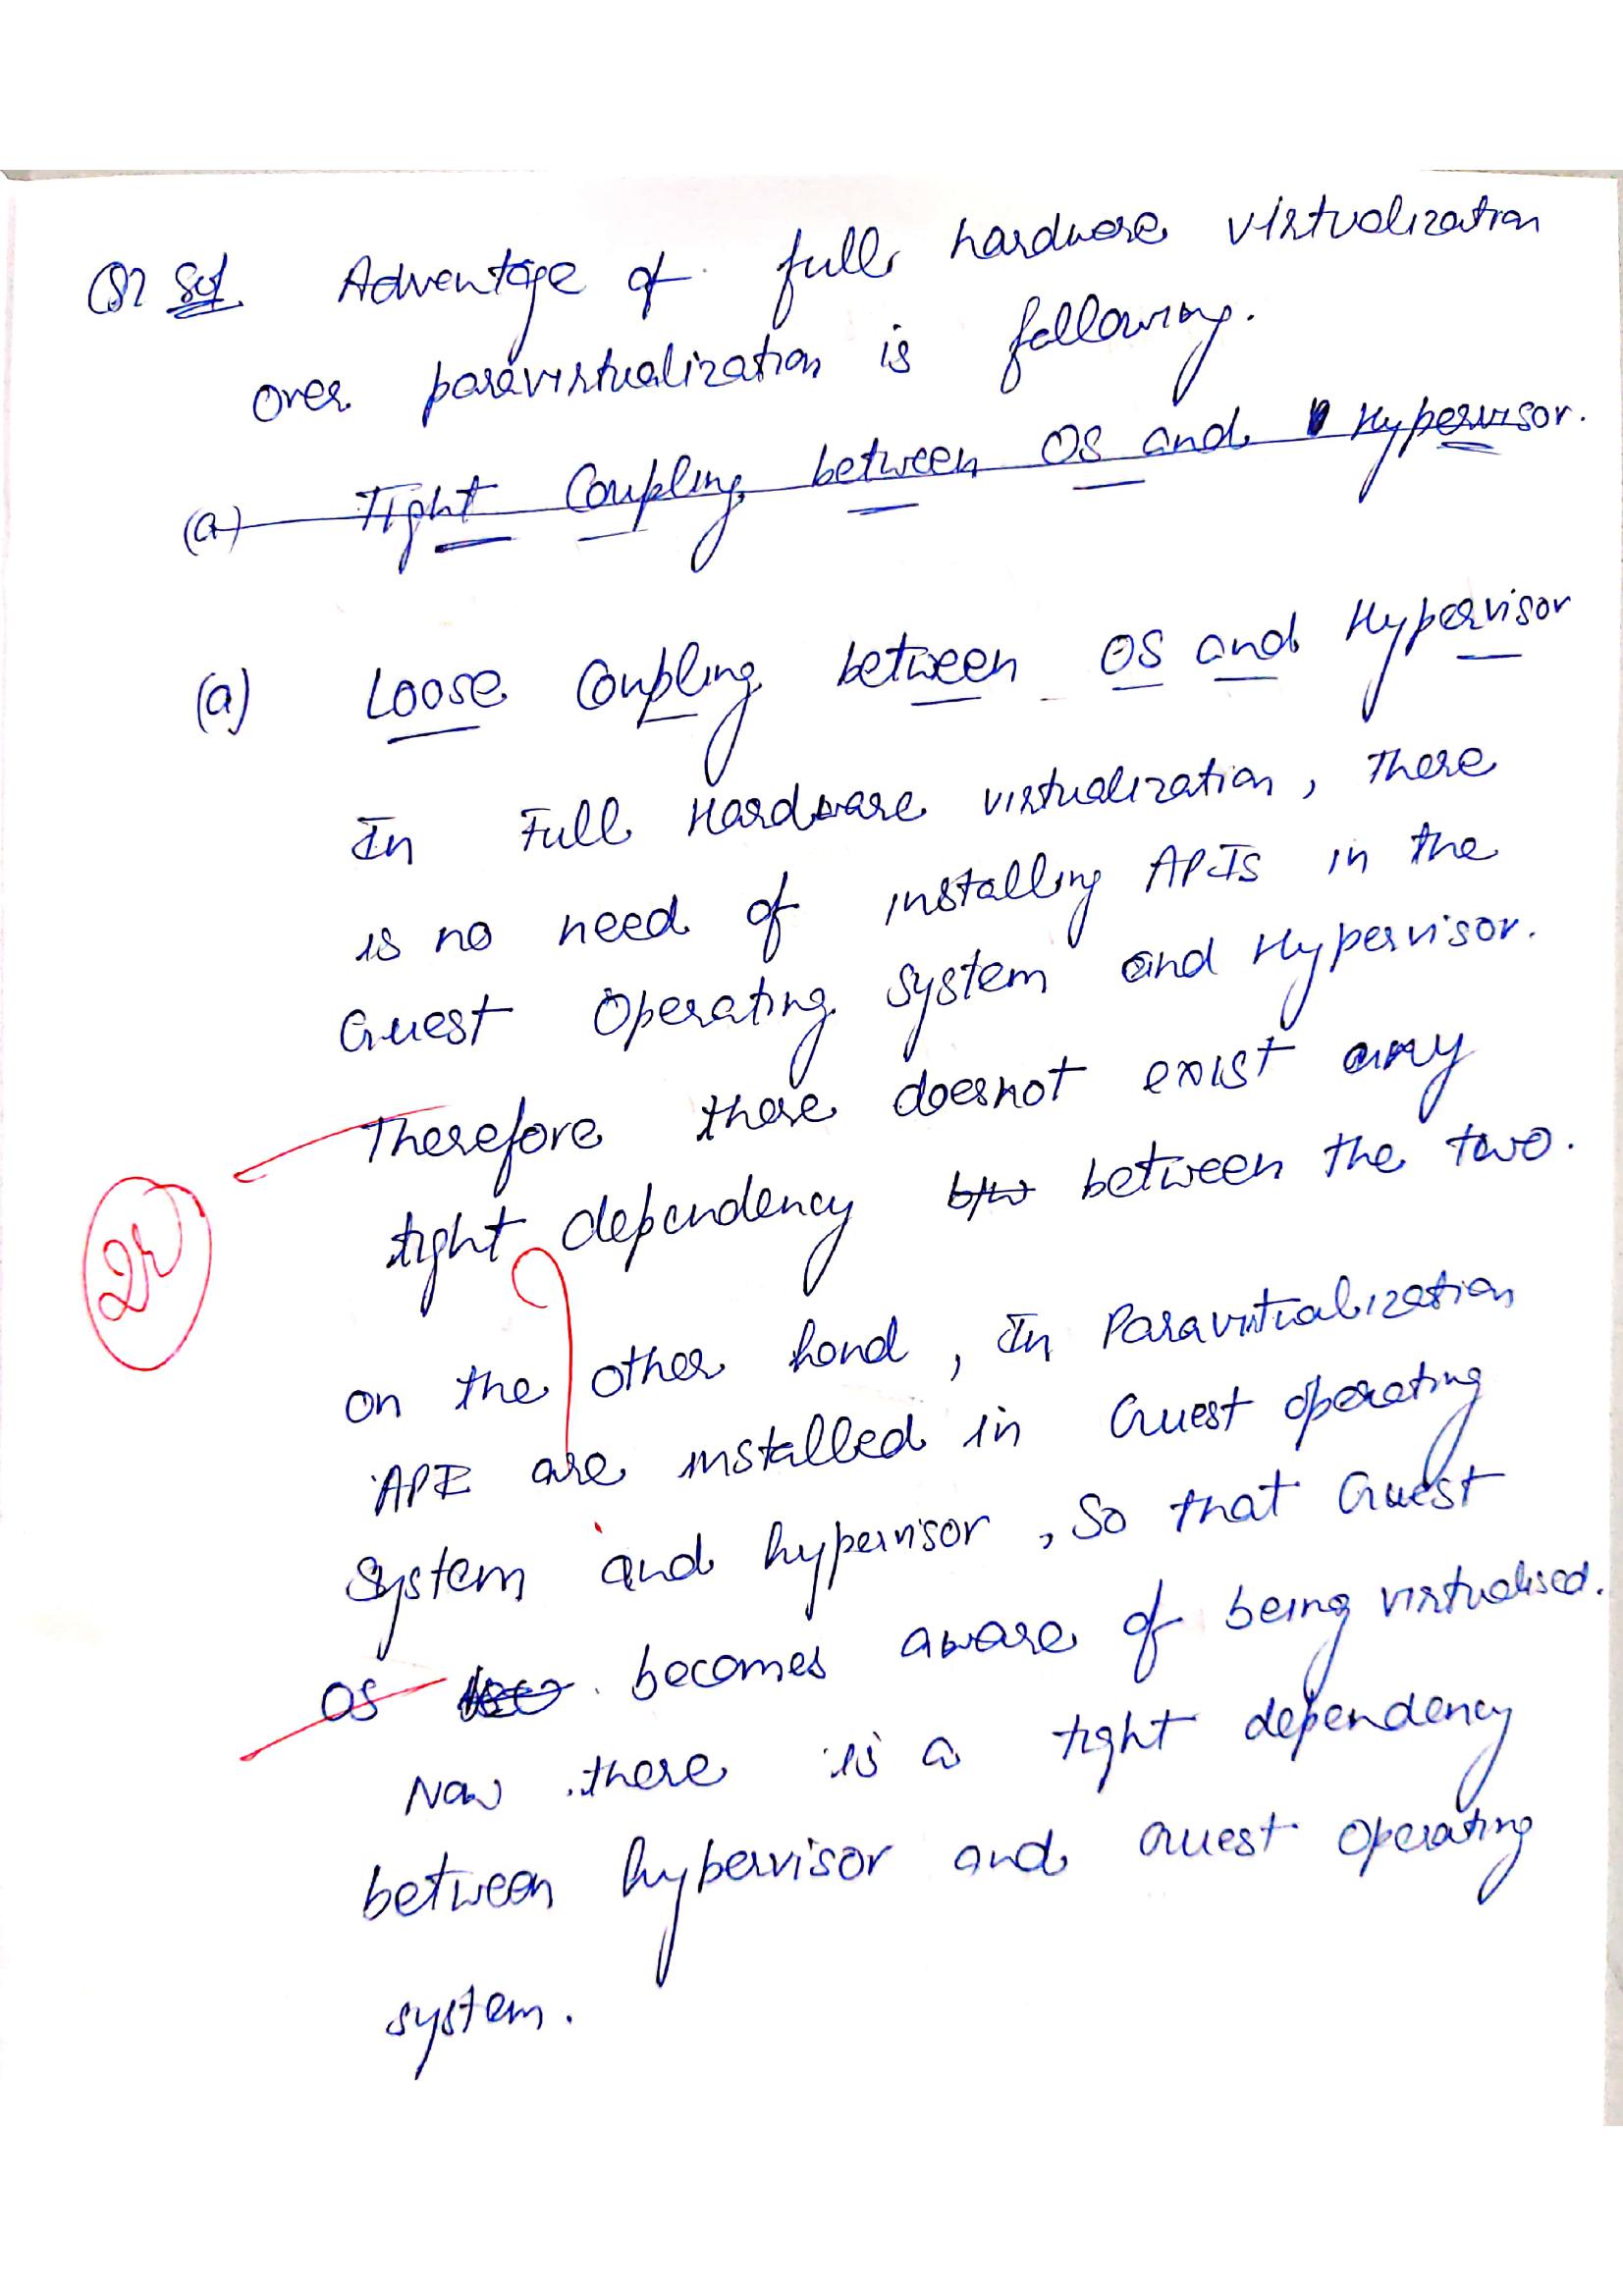 Q2 Sol Adventage of full hardware virtualization
over paravirtualization is following.
(a) Tight Coupling between OS and Hypervisor.
(a) Loose Coupling between OS and Hypervisor
In Full Hardware virtualization, There
is no need of installing APIs in the
Guest Operating System and Hypervisor.
Therefore there doesnot exist any
tight dependency b/w between the two.
on the other hand, In Paravirtualization
API are installed in Guest operating
System and hypervisor, So that Guest
OS becomes aware of being virtualised.
Now there is a tight dependency
between hypervisor and Guest Operating
system.